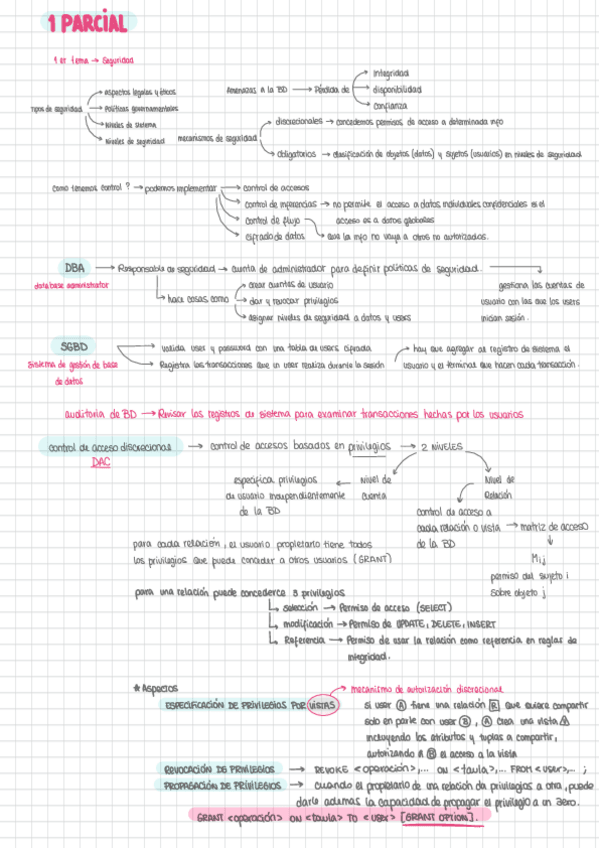 1 PARCIAL
1 er tema → Seguridad
Tipos de seguridad
aspectos legales y éticos
Políticas governamentales
Niveles de sistema
Niveles de seguridad
Amenazas a la BD → Pérdida de
integridad
disponibilidad
confianza
mecanismos de seguridad
discrecionales → concedemos permisos de acceso a determinada info
obligatorios → clasificación de objetos (datos) y sujetos (usuarios) en niveles de seguridad
como tenemos control ? → podemos implementar
control de accesos
control de inferencias → no permite el acceso a datos individuales confidenciales si el
acceso es a datos globales
control de flujo
que la info no vaya a otros no autorizados.
cifrado de datos
DBA → Responsable de seguridad → cuenta de administrador para definir políticas de seguridad.
database administrator
hace cosas como
crear cuentas de usuario
dar y revocar privilegios
asignar niveles de seguridad a datos y users
gestiona las cuentas de
usuario con las que los users
inician sesión.
SGBD
Sistema de gestión de base
de datos
valida user y password con una tabla de users cifrada
Registra las transacciones que un user realiza durante la sesión
hay que agregar al registro de sistema el
usuario y el terminal que hacen cada transacción.
auditoria de BD → Revisar los registros de sistema para examinar transacciones hechas por los usuarios
control de acceso discrecional → control de accesos basados en privilegios → 2 NIVELES
DAC
Nivel de
cuenta
especifica privilegios
de usuario independientemente
de la BD
Nivel de
Relación
control de acceso a
cada relación o vista → matriz de acceso
de la BD
Mij
permiso del sujeto i
sobre objeto j
para cada relación, el usuario propietario tiene todos
los privilegios que puede conceder a otros usuarios (GRANT)
para una relación puede concederce 3 privilegios
selección → Permiso de acceso (SELECT)
modificación → Permiso de UPDATE, DELETE, INSERT
Referencia → Permiso de usar la relación como referencia en reglas de
integridad.
* Aspectos
ESPECIFICACIÓN DE PRIVILEGIOS POR VISTAS
mecanismo de autorización discrecional
si user A tiene una relación R que quiere compartir
solo en parte con user B, A crea una vista
incluyendo los atributos y tuplas a compartir,
autorizando A B el acceso a la vista
REVOCACIÓN DE PRIVILEGIOS → REVOKE <operación>,... ON <taula>,... FROM <user>,... ;
PROPAGACIÓN DE PRIVILEGIOS → cuando el propietario de una relación da privilegios a otra, puede
darle ademas la capacidad de propagar el privilegio a un 3ero.
GRANT <operación> ON <taula> TO <user> [GRANT OPTION].